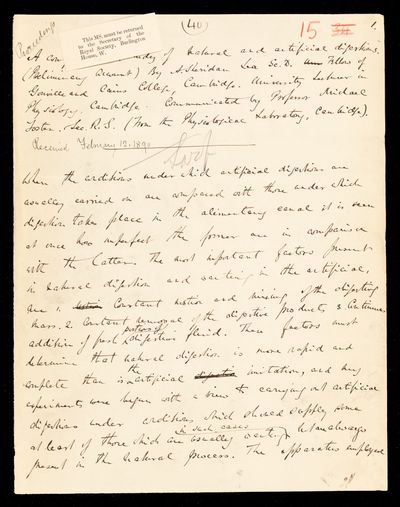 (40)
15
1.
Proceedings
This MS. must be returned
to the Secretary of the
Royal Society, Burlington
House, W.
A com study of natural and artificial digestions.
(Preliminary account) By A. Sheridan Lea Sc.D. Fellow of
Gonville and Caius College, Cambridge. University Lecturer in
Physiology, Cambridge. Communicated by Professor Michael
Foster, Sec. R.S. (From the Physiological Laboratory, Cambridge).
Received February 12, 1890
When the conditions under which artificial digestions are
usually carried on are compared with those under which
digestion takes place in the alimentary canal it is seen
at once how imperfect the former are in comparison
with the latter. The most important factors present
in natural digestion and wanting in the artificial,
are 1. Constant motion and mixing of the digesting
mass. 2. Constant removal of the digestive products 3. Continuous
addition of fresh portions of digestive fluid. These factors must
determine that natural digestion is more rapid and
complete than is the artificial imitation, and my
experiments were begun with a view to carrying out artificial
digestions under conditions which should supply some
at least of those which are usually wanting in such cases & always
present in the natural process. The apparatus employed